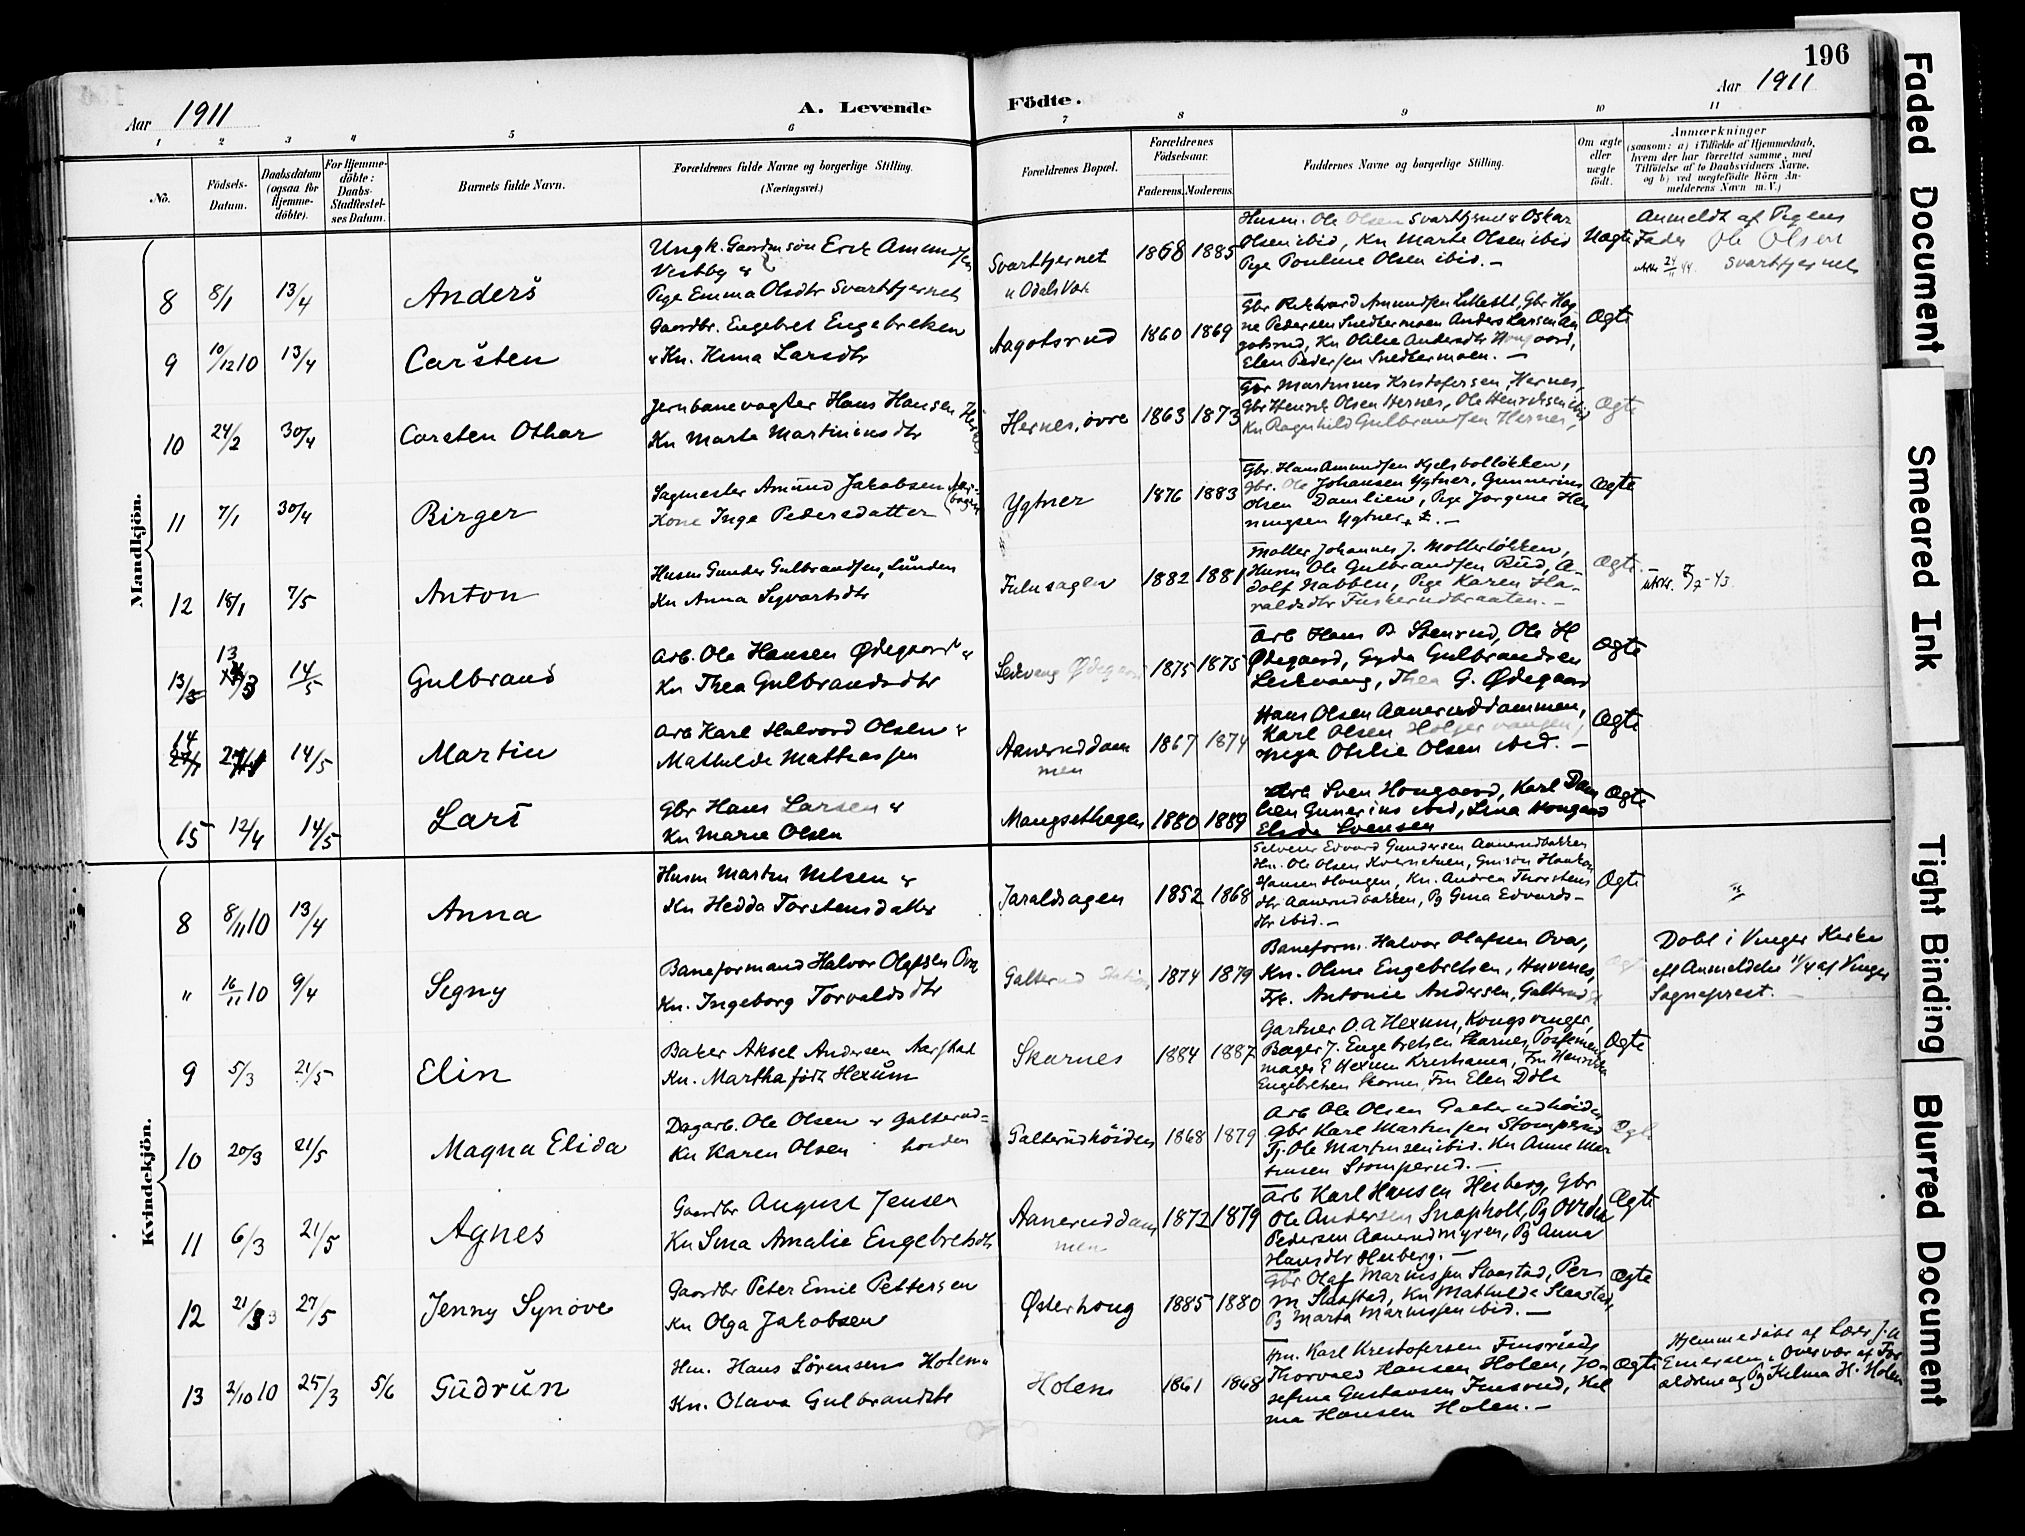 196
Aar 1911
A. Levende Födte.
Aar 1911
1 2 3 4 5 6 7 8 9 10 11
No.
Födsels-
Datum.
Daabsdatum
(ogsaa for
Hjemme-
döbte).
For Hjemme-
döbte:
Daabs-
Stadfæstel-
ses Datum.
Barnets fulde Navn.
Forældrenes fulde Navne og borgerlige Stilling.
(Næringsvei.)
Forældrenes Bopæl.
Forældrenes
Födselsaar.
Faderens. Moderens.
Faddernes Navne og borgerlige Stilling.
Om ægte
eller
uægte
födt.
Anmærkninger
(saasom: a) i Tilfælde af Hjemmedaab,
hvem der har forrettet samme, med
Tilföielse af to Daabsvidners Navne,
og b) ved uægtefödte Börn An-
melderens Navn m. V.)
Mandkjön.
8 8/1 13/4 Anders
Ungk. Gaardmsön Erik Amundsen
Vestby &
Pige Emma Olsdtr Svartkjernet
Svartkjernet
1868 1885
Husm. Ole Olsen Svartkjernet & Oskar
Olsen ibid, Kn Marte Olsen ibid
Pige Pouline Olsen ibid. —
Uægte
Anmeldt af Pigens
Fader Ole Olsen
Svartkjernet
9 10/12 10 13/4 Carsten
Gaardbr. Engebret Engebretsen
& Kn. Larsdtr
Aagotsrud
1860 1869
Elen Pedersen Snedkermoen. —
Ægte
10 24/2 30/4 Carsten Othar
Jernbanevagter Hans Hansen
Kn Marte Martiniusdtr
Hernes, övre
1863 1873
Gbr Martinus Kristofersen, Hernes,
Gbr Henrik Olsen Hernes, Ole Henriksen ibid
Kn Ragnhild Gulbrandsen Hernes,
Ægte
11 7/1 30/4 Birger
Sagmester Amund Jakobsen
Kone Inga Pedersdatter
Ygtner
1876 1883
Gbr. Hans Amundsen
Gbr. Ole Johansen Ygtner, Gunnerius
Olsen Damlien, Pige Jörgine Hen
ningsen Ygtner
Ægte
12 18/1 7/5 Anton
Husm Gunder Gulbrandsen, Lunden
Kn Anna Sigvartsdtr
Fulusagen
1882 1881
Möller Johannes J. Möllerlökken,
Husm Ole Gulbrandsen Rud, A-
dolf Nabben, Pige Karen Ha-
raldsdtr Fuskerudbraaten. —
Ægte.
13/3 13/3 14/5 Gulbrand
Arb. Ole Hansen Ødegaard &
Kn Thea Gulbrandsdtr
Leikvang Ødegaard
1875 1875
Arb Hans B Stenrud, Ole H
Ødegaard, Gyda Gulbrandsen
Leikvang, Thea G. Ødegaard
Ægte
14 14/5 Martin
Arb Karl Halvard Olsen &
Mathilde Mathiassen
Aaneruddam
men
1867 1874
Hans Olsen Aaneruddammen,
Karl Olsen
Otilie Olsen ibid. —
Ægte
15 12/4 14/5 Lars
Gbr Hans Larsen &
Kn Marie Olsen
Mangsethagen
1880 1889
Arb Sven Hongaard, Karl Dam
lien Gunerius ibid, Lina Hongaard
Elida Svensen
Ægte
Kvindekjön.
8 8/11 10 13/4 Anna
Husm Martin Nilsen &
Kn Hedda Torstensdatter
Jaraldsagen
1852 1868
Selveier Edvard Gundersen Aanerudbakken
Hm. Ole Olsen Kvernstuen, Gmsön Haakon
Hansen Haugen, Kn. Andrea Thorstens
dtr Aanerudbakken, Pg Gina Edvards-
dtr ibid. —
Ægte
" 16/11 10 9/4 Signy
Baneformand Halvor Olafsen Ova
Kn. Ingeborg Torvaldsdtr
Galterud Station
1874 1879
Baneform. Halvor Olafsen Ova,
Kn. Oline Engebretsen,
Frk. Antonie Andersen, Galterud
Döbt i Vinger Kirke
eft Anmeldelse 11/4 af Vinger
Sogneprest. —
9 5/3 21/5 Elin
Baker Aksel Andersen Aarstad
Kn. Martha født Hexum
Skarnes
1884 1887
Gartner O. A Hexum, Kongsvinger,
Bager J. Engebretsen Skarnes,
mager E Hexum Kristiania, Fru Henrikka
Engebretsen Skarnes, Fru Elen Döli
Ægte
10 20/3 21/5 Magna Elida
Dagarb. Ole Olsen & Galterud=
Kn Karen Olsen höiden
Galterudhöiden
1868 1879
Arb Ole Olsen Galterudhöiden
Gbr Karl Martinsen Stomperud
Tj. Ole Martinsen ibid. Kn Anne Mar
tinsen Stomperud. —
Ægte
11 6/3 21/5 Agnes
Gaardbr August Jensen
Kn Lina Amalie Engebretsdtr
Aaneruddam
men
1872 1879
Arb Karl Hansen Heiberg, Gbr
Ole Andersen Snapholt, Pg
Pedersen Aanerudmyren, Pg Anna
Hansdtr Heiberg. —
Ægte
12 21/3 27/5 Jenny Synöve
Gaardbr Peter Emil Pettersen
Kn Olga Jakobsen
Østerhoug
1885 1880
Gbr Olaf Mariussen Slaastad, Per
M Slaastad, Kn Mathilde Slaastad,
Pg Marta Mariussen ibid. —
Ægte
13 2/10 10 25/3 5/6 Gudrun
Hm. Hans Sörensens Holen &
Kn. Olava Gulbrandsdtr
Holen
1861 1868
Hm. Karl Kristofersen Finsrud,
Thorvald Hansen Holen, Jo-
sefine Gustavsen Finsrud, Hil
ma Hansen Holen. —
Ægte
Hjemmedöbt af Lærer J. A
Emersen. Overvær af For
ældrene og Pg Hilma H. Holen
Faded Document
Smeared Ink
Tight Binding
Blurred Document